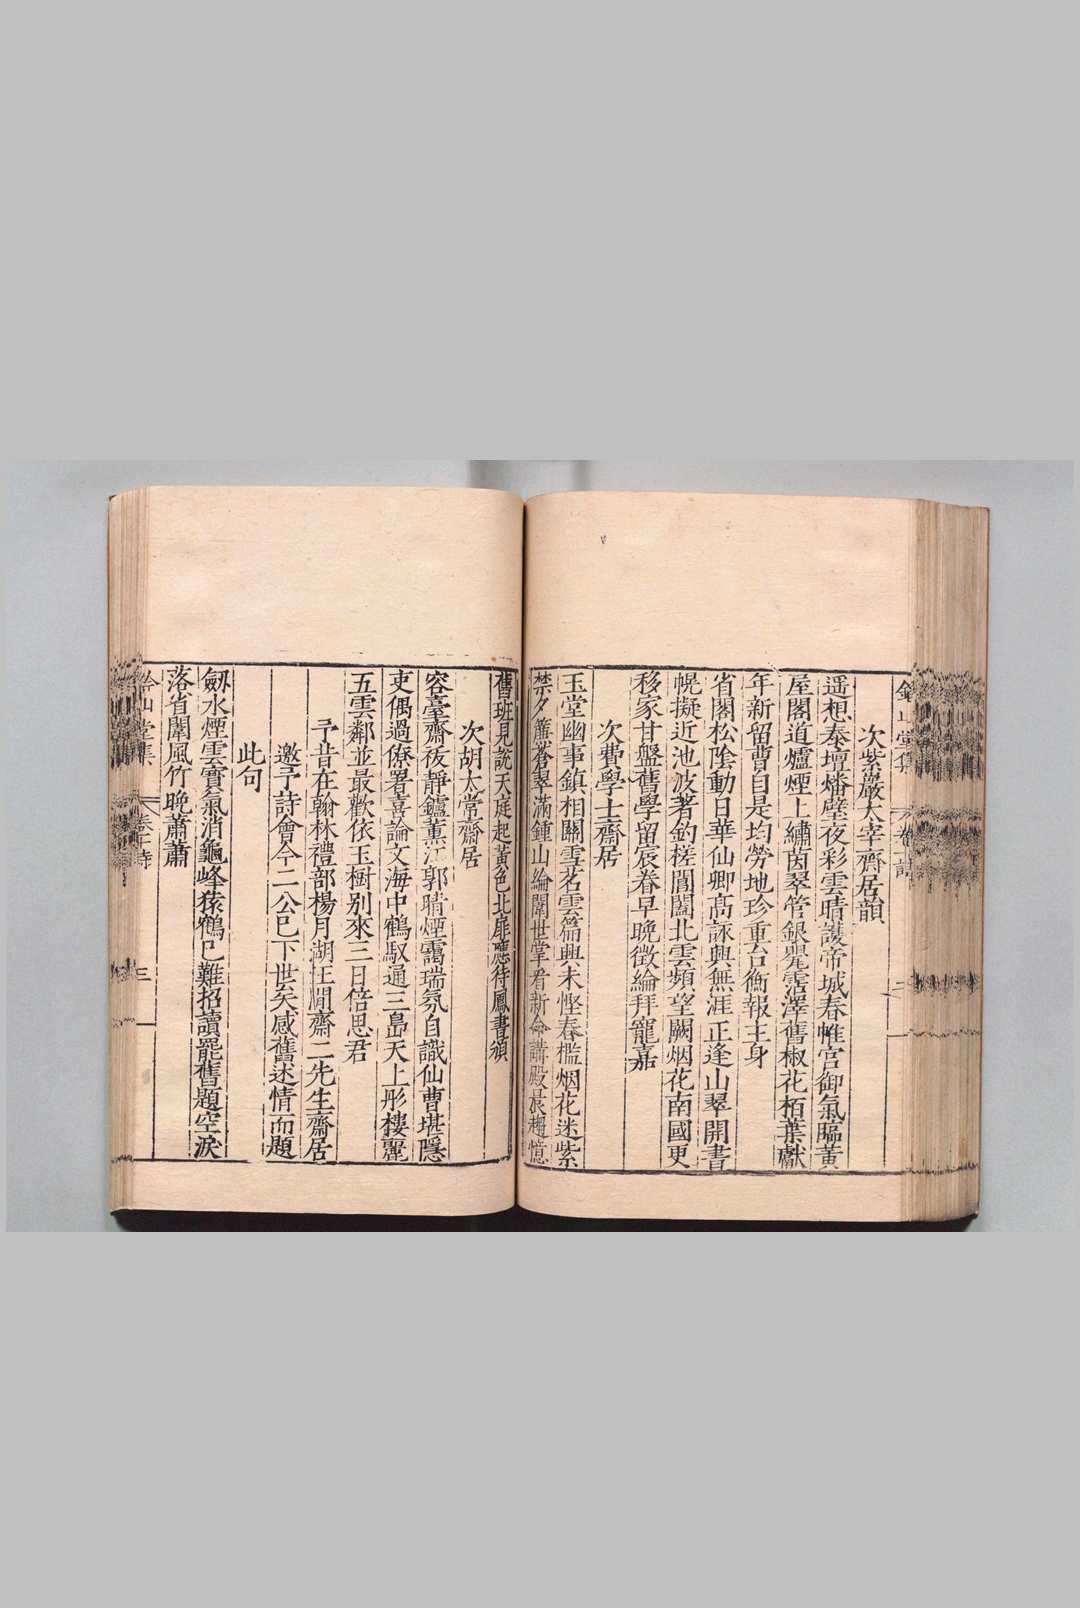 次紫巖太宰齊居韻
遥想泰壇燔璧夜彩雲晴護帝城春帷宫御氣曉黃
屋閣道爐煙上繡茵翠管銀甖霑澤舊椒花栢葉獻
年新留曹自是均勞地珍重台衡報主身
省閣松陰動日華仙卿髙詠興無涯正逢山翠開書
幌擬近池波著釣槎閶闔北雲頻望闕烟花南國更
移家甘盤舊學留宸眷早晚徵綸拜寵嘉
次費學士齋居
玉堂幽事鎮相關雪茗雲篇興未慳春檻烟花迷紫
禁夕簾蒼翠滿鍾山綸闈世掌看新命講殿晨趨憶
舊班見說天庭起黃色北扉應待鳳書頒
次胡太常齋居
容臺齋夜靜鑪薰江郭晴煙靄瑞氛自識仙曹堪隱
吏偶過僚署喜論文海中鶴馭通三島天上彤樓麗
五雲鄰並最歡依玉樹别來三日倍思君
予昔在翰林禮部楊月湖汪閒齋二先生齋居
邀予詩會今二公已下世矣感舊述情而題
此句
劔水煙雲寶氣消龜峰猿鶴已難招讀罷舊題空淚
落省闈風竹晚蕭蕭
鈐山堂集
三